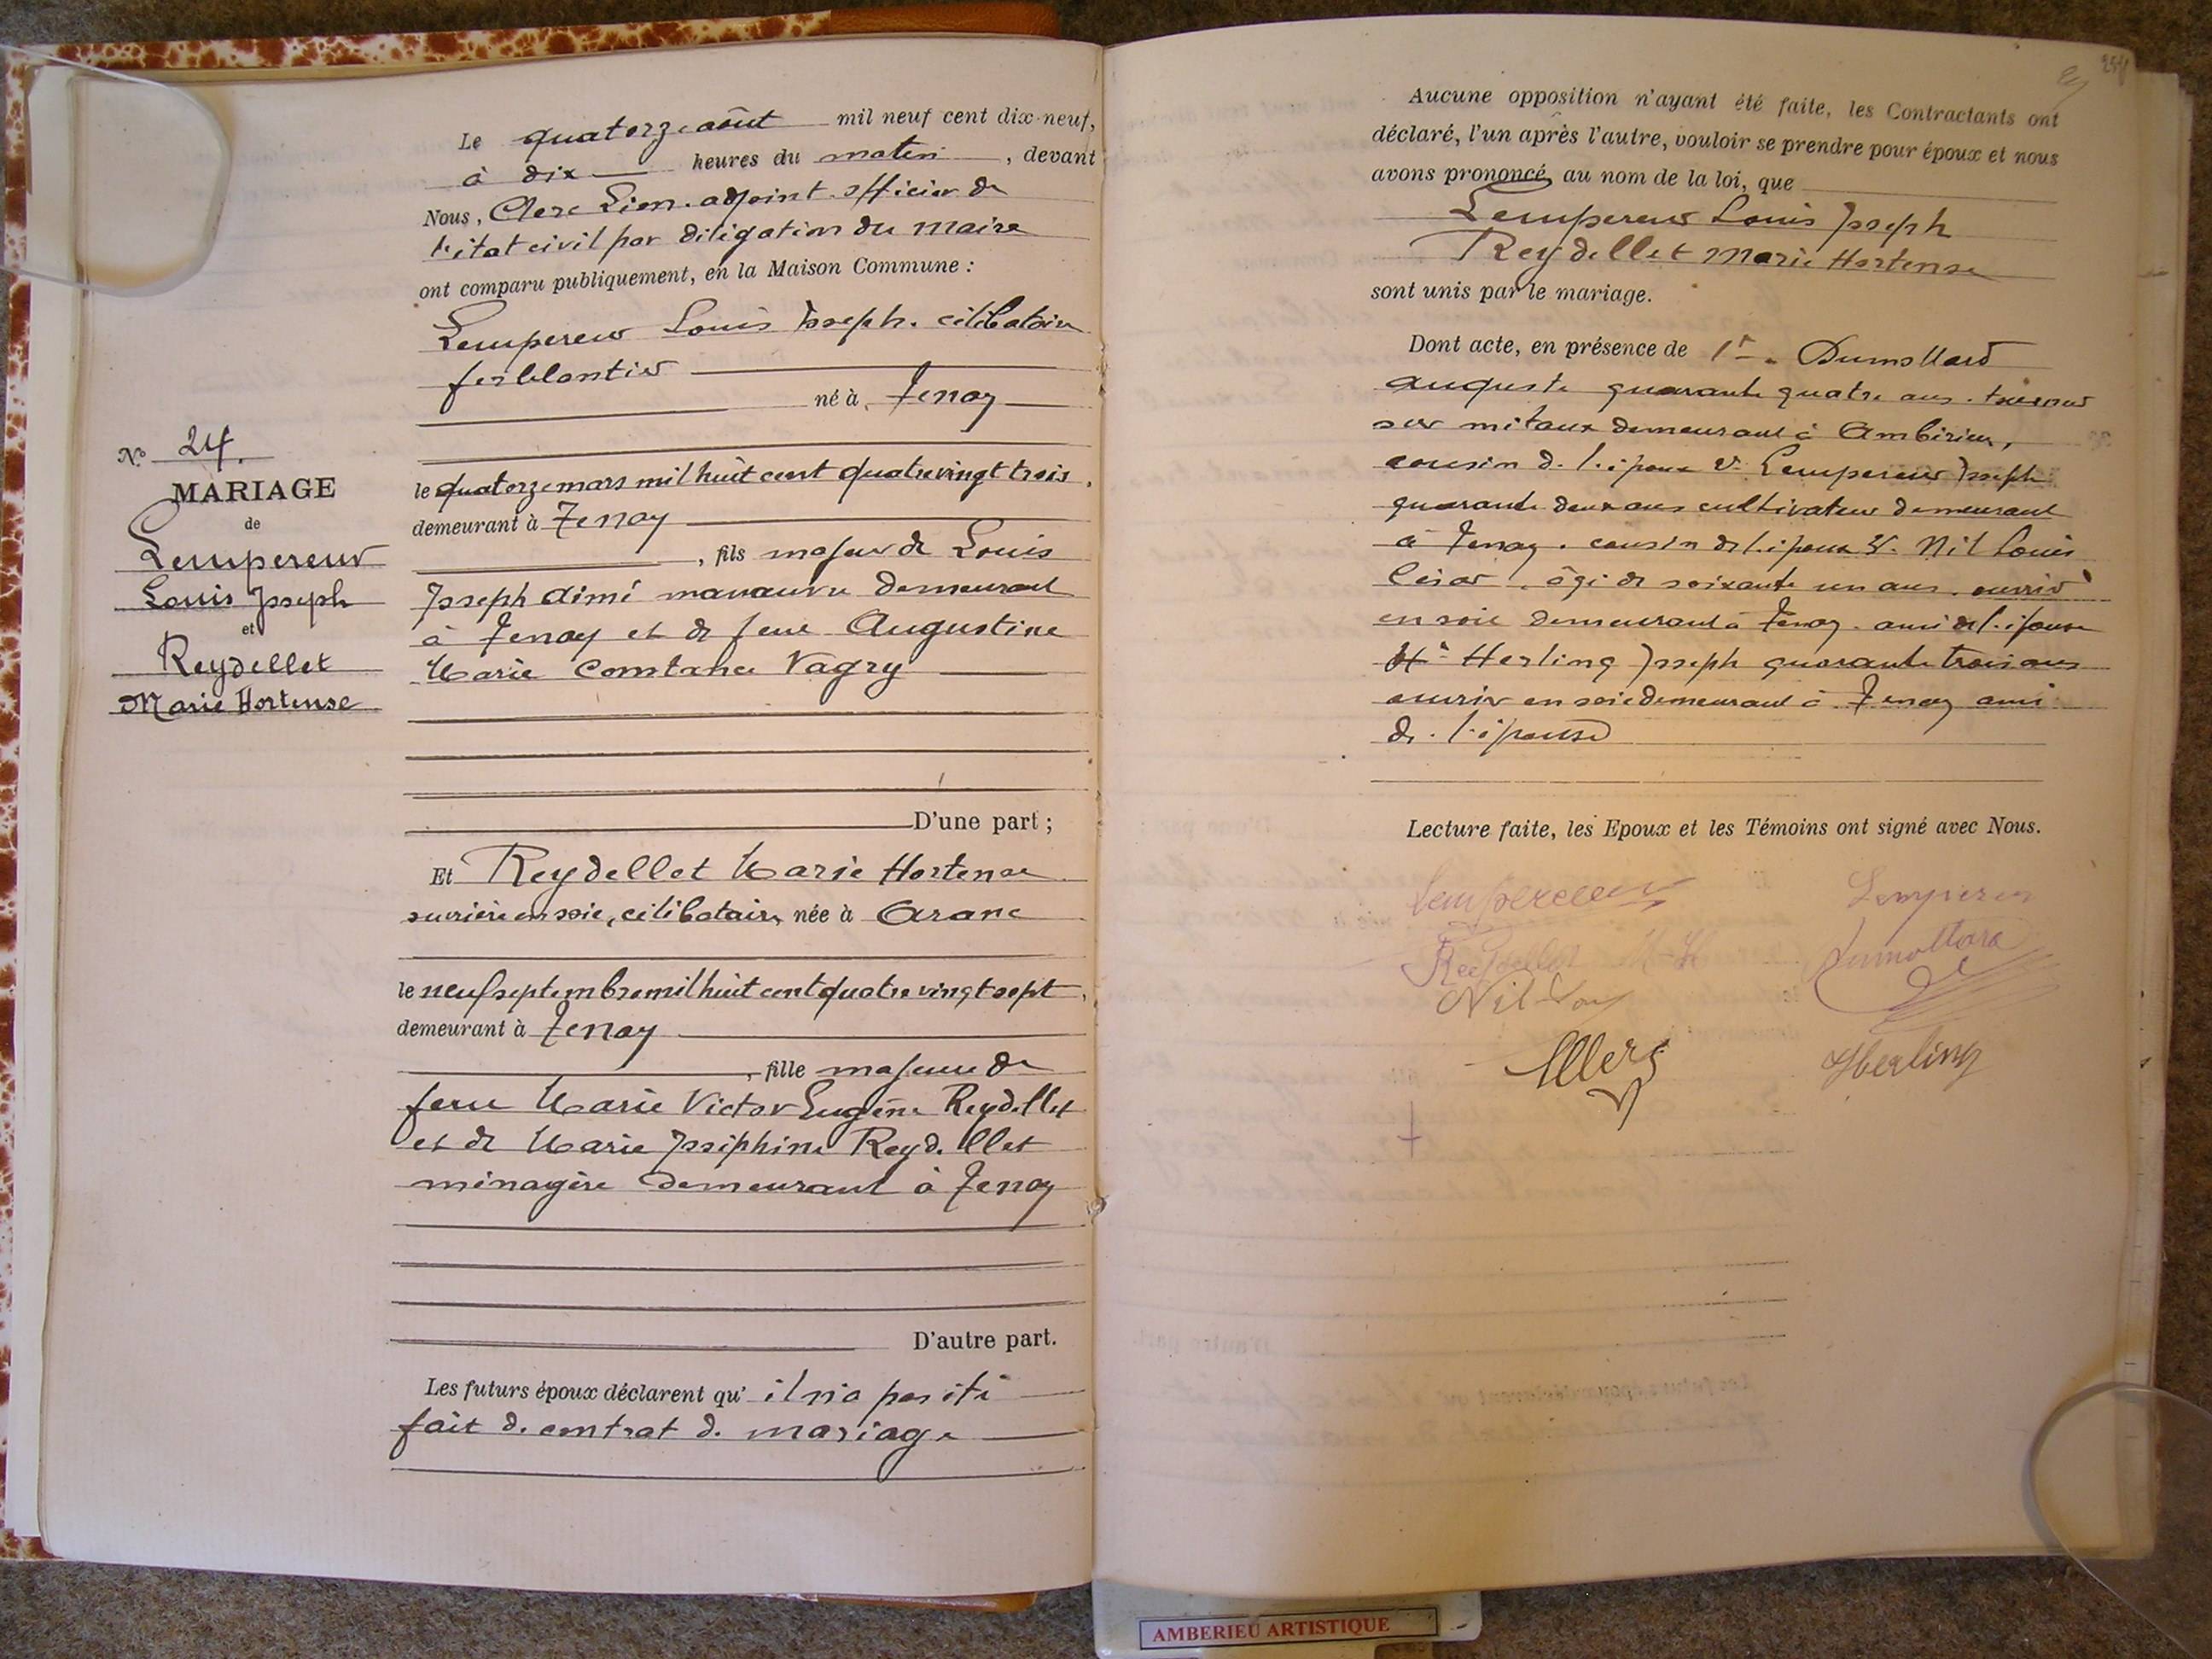 Nº 24.
MARIAGE
de
Lempereur
Louis Joseph
et
Reydellet
Marie Hortense
Le quatorze août mil neuf cent dix-neuf,
à dix heures du matin, devant
Nous, Clerc Léon. adjoint officier de
l'état civil par déligation du maire
ont comparu publiquement, en la Maison Commune :
Lempereur Louis Joseph. célibataire
ferblantier
né à Tenay
le quatorze mars mil huit cent quatre vingt trois,
demeurant à Tenay
, fils majeur de Louis
Joseph Aimé manœuvre demeurant
à Tenay et de feue Augustine
Marie Constance Vagry
D'une part ;
Et Reydellet Marie Hortense
ouvrière en soie, célibataire, née à Aranc
le neuf septembre mil huit cent quatre vingt sept,
demeurant à Tenay
, fille majeure de
feu Marie Victor Eugène Reydellet
et de Marie Joséphine Reydellet
ménagère demeurant à Tenay
D'autre part.
Les futurs époux déclarent qu' il n'a pas été
fait de contrat de mariage
Aucune opposition n'ayant été faite, les Contractants ont
déclaré, l'un après l'autre, vouloir se prendre pour époux et nous
avons prononcé, au nom de la loi, que
Lempereur Louis Joseph
Reydellet Marie Hortense
sont unis par le mariage.
Dont acte, en présence de 1º. Dumollard
Auguste quarante quatre ans. tourneur
sur métaux demeurant à Ambérieu,
cousin de l'époux 2º Lempereur Joseph
quarante deux ans cultivateur demeurant
à Tenay. cousin de l'époux 3º. Nil Louis
César, âgé de soixante un ans. ouvrier
en soie demeurant à Tenay. ami de l'épouse
4º Herling Joseph quarante trois ans
ouvrier en soie demeurant à Tenay ami
de l'épouse
Lecture faite, les Epoux et les Témoins ont signé avec Nous.
Lempereur
Lempereur
Reydellet M-H
Dumollard
Nil Louis
Herling
AMBERIEU ARTISTIQUE